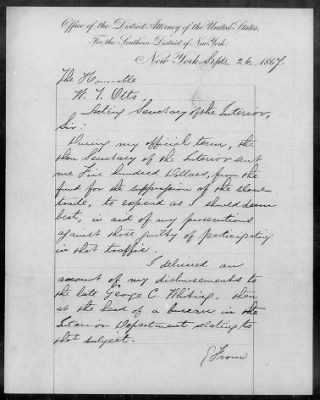 Office of the District Attorney of the United States,
For the Southern District of New York.
New York Septr 26 1867.
The Honorable
W. T. Otto,
Acting Secretary of the Interior,
Sir:
During my official term, the
then Secretary of the Interior sent
me Five hundred Dollars, from the
fund for the suppression of the slave-
trade, to expend as I should deem
best, in aid of my prosecutions
against those guilty of participating
in that traffic.
I delivered an
account of my disbursements to
the late George C. Whiting, then
at the head of a bureau in the
Interior Department relating to
that subject.
(From